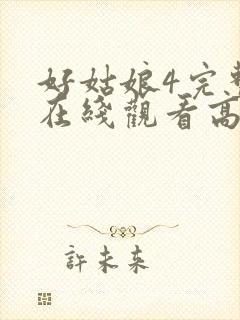 好姑娘4完整
在线觀看高
許未来